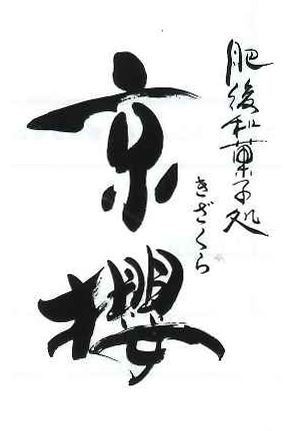 肥後和菓子処
きざくら
京櫻